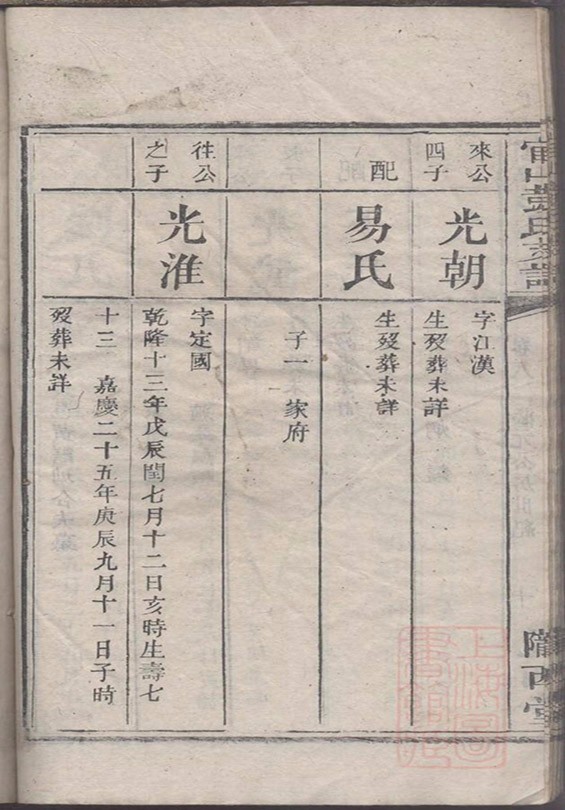 官山彭氏支譜
隴西堂
來公
四子
光朝
字江漢
生歿葬未詳
配
易氏
生歿葬未詳
子一家府
往公
之子
光淮
字定國
乾隆十三年戊辰閏七月十二日亥時生壽七
十三 嘉慶二十五年庚辰九月十一日子時
歿葬未詳
上海圖
書館藏